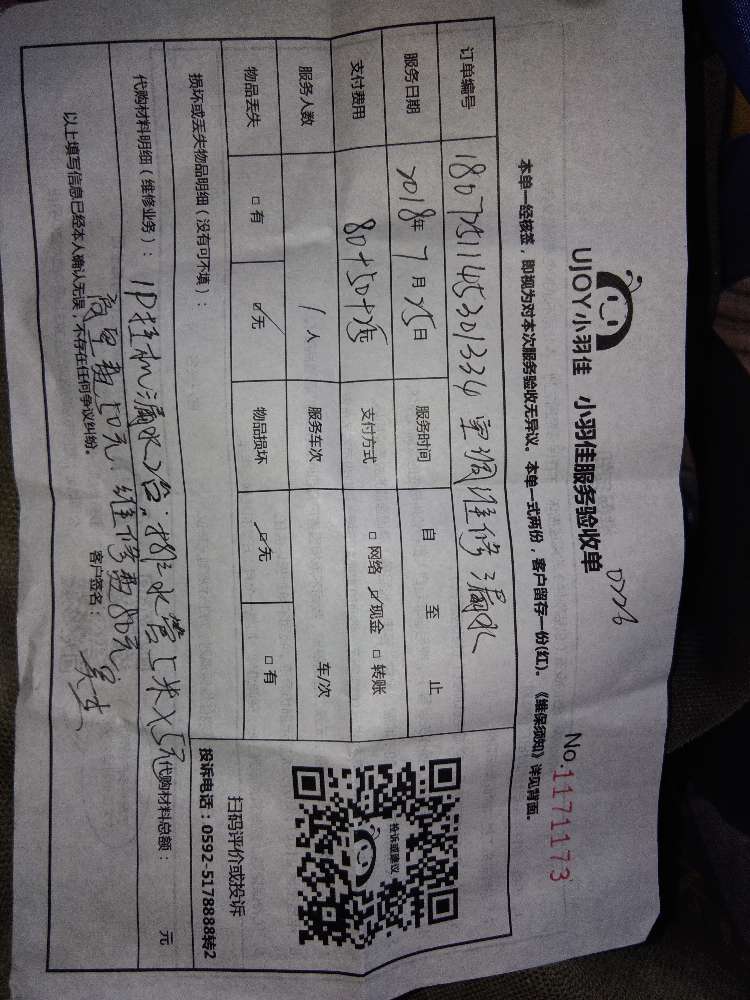 UJOY小羽佳 小羽佳服务验收单
No.1171173
本单一经核签，即视为对本次服务验收无异议。本单一式两份，客户留存一份(红)。《维保须知》详见背面。
订单编号 空调维修 漏水
服务日期 2018年7月25日 服务时间 自 至 止
支付费用 80+50+25元 支付方式 □网络 ☑现金 □转账
服务人数 1人 服务车次 车/次
物品丢失 □有 ☑无 物品损坏 ☑无 □有
损坏或丢失物品明细（没有可不填）：
代购材料明细（维修业务）：1P挂机漏水 排水管5米X5元 代购材料总额： 元
50元 维修费80元
以上填写信息已经本人确认无误，不存在任何争议纠纷。 客户签名：
投诉或建议
扫码评价或投诉
投诉电话：0592-5178888转2